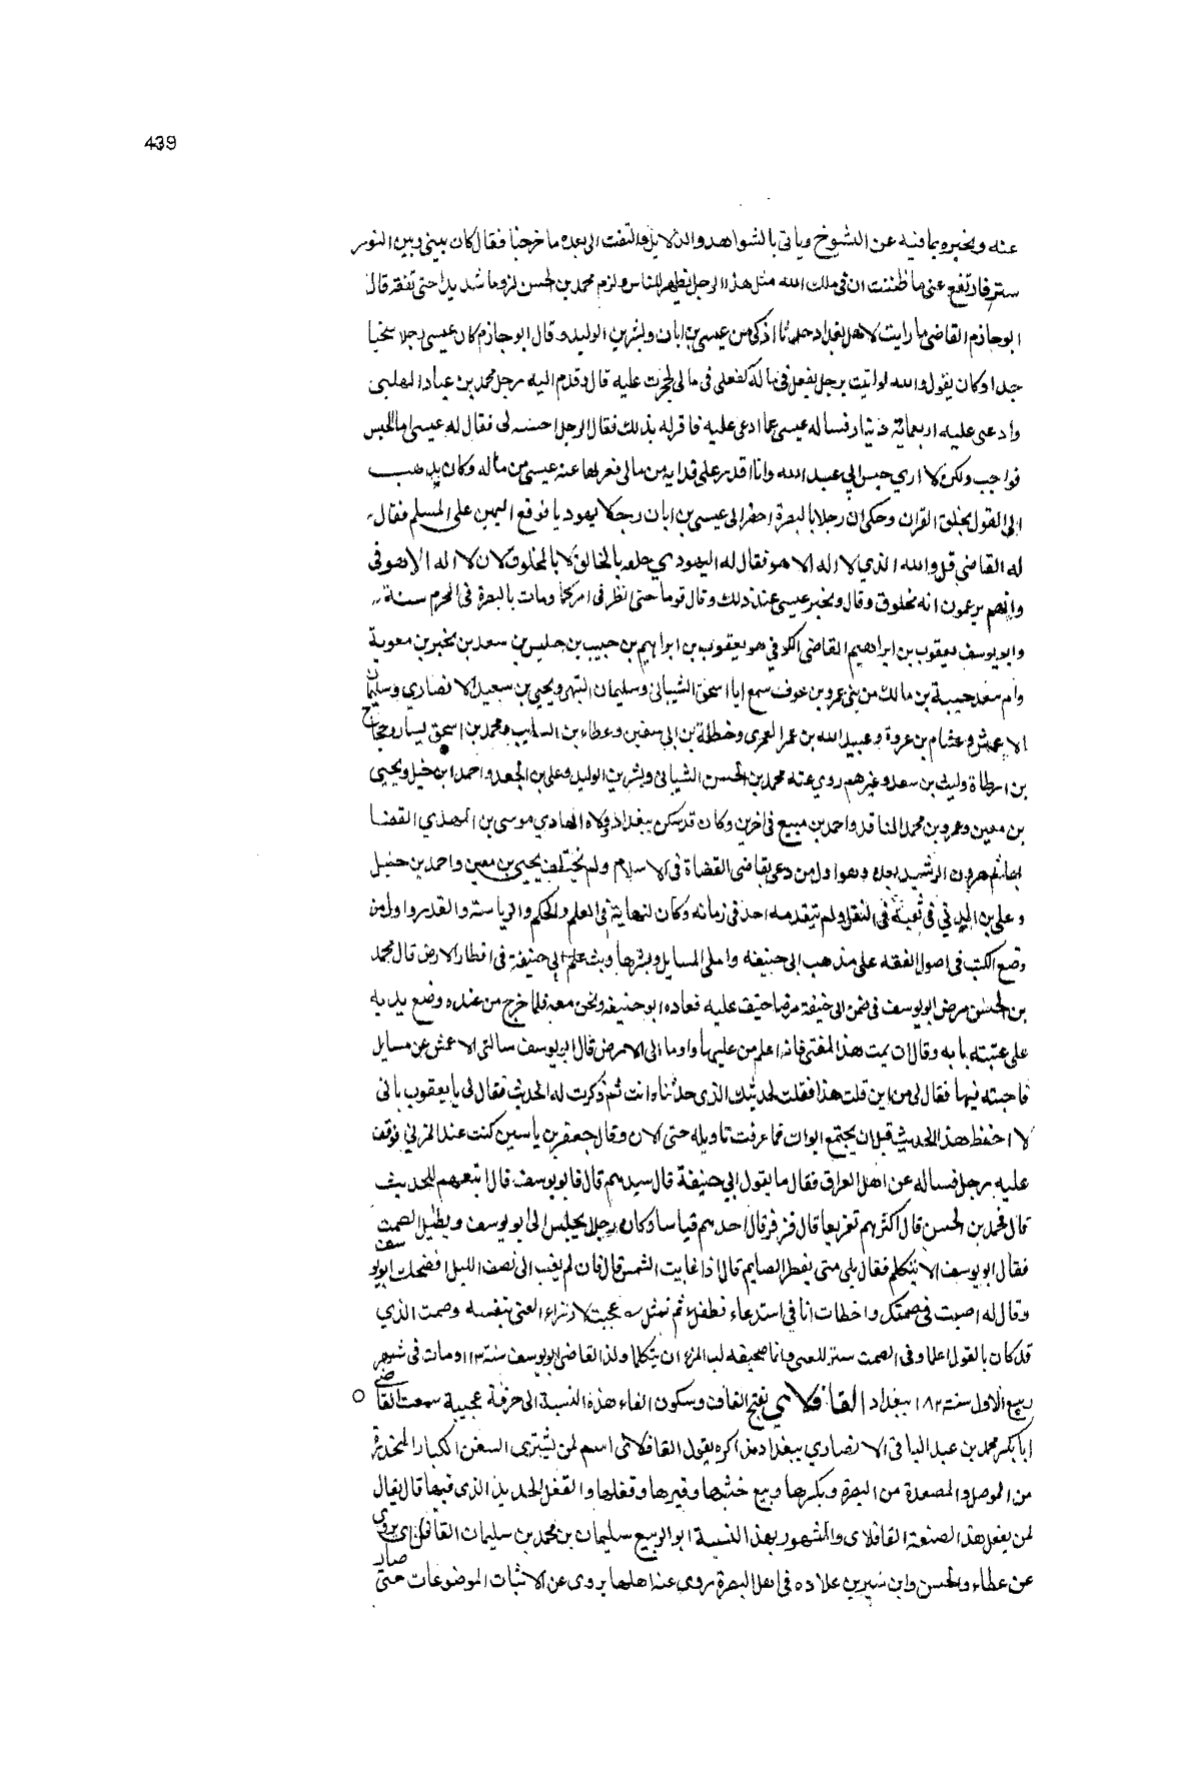 439
عنه ويخبره بما فيه عن الشيوخ وياتي بالشواهد والدلايل والتفت الى بعده ما خرجنا فقال كان بيني وبين النور
ستر فارتفع عني ما ظننت ان في ملك الله مثل هذا الرجل يظهر للناس ولزم محمد بن الحسن لزوما شديدا حتى تفقه قال
ابو حازم القاضي ما رايت لاهل بغداد حدثا اذكى من عيسى بن ابان وبشر بن الوليد وقال ابو حازم كان عيسى رجلا سخيا
جدا وكان يقول والله لو اتيت برجل يفعل في ماله كفعلي في مالي لحجرت عليه قال وقدم اليه رجل محمد بن عباد المهلبي
وادعى عليه اربعمائة دينار فساله عيسى عما ادعى عليه فاقر له بذلك فقال الرجل احبسه لي فقال له عيسى اما الحبس
فواجب ولكن لا اري حبس ابي عبد الله وانا اقدر على فدايه من مالي فغرمها عنه عيسى من ماله وكان يذهب
الى القول بخلق القران وحكى ان رجلا بالبصرة احضر الى عيسى بن ابان رجلا يهوديا فوقع اليمين على المسلم فقال
له القاضي قل والله الذي لا اله الا هو فقال له اليهودي حلفه بالخالق لا بالمخلوق لان لا اله الا هو في
وانتم يزعمون انه مخلوق وقال وتحير عيسى عند ذلك وقال قوما حتى انظر في امركما ومات بالبصرة في المحرم سنة
وابو يوسف يعقوب بن ابراهيم القاضي الكوفي هو يعقوب بن ابراهيم بن حبيب بن حبيش بن سعد بن بجير بن معوية
وام سعد حبيبة بن مالك من بني عمرو بن عوف سمع ابا اسحق الشيباني وسليمان التيمي ويحيى بن سعيد الانصاري وسليمان
الاعمش وهشام بن عروة وعبيد الله بن عمر العمري وحنظلة بن ابي سفين وعطاء بن السايب ومحمد بن اسحق يسار وحجاج
بن ارطاة وليث بن سعد وغيرهم روي عنه محمد بن الحسن الشيباني وبشر بن الوليد وعلي بن الجعد واحمد ابن حنبل ويحيى
بن معين وعمرو بن محمد الناقد واحمد بن منيع في اخرين وكان قد سكن بغداد وولاه الهادي موسى بن المهدي القضا
بها ثم هرون الرشيد بعده وهو اول من دعي بقاضي القضاة في الاسلام ولم يختلف يحيى بن معين واحمد بن حنبل
وعلي بن المديني في ثقته في النقل ولم يتقدمه احد في زمانه وكان النهاية في العلم والحكم والرياسة والقدر واول من
وضع الكتب في اصول الفقه على مذهب ابي حنيفه واملى المسايل ونشرها وبث علم ابي حنيفة في اقطار الارض قال محمد
بن الحسن مرض ابو يوسف في زمن ابي حنيفة مرضا خيف عليه فعاده ابو حنيفه ونحن معه فلما خرج من عنده وضع يديه
على عتبة بابه وقال ان يمت هذا الفتى فانه اعلم من عليها واوما الى الارض قال ابو يوسف سالني الاعمش عن مسايل
فاجبته فيها فقال لي من اين قلت هذا فقلت لحديثك الذي حدثناه انت ثم ذكرت له الحديث فقال لي يا يعقوب باني
لا احفظ هذا الحديث قبل ان يجتمع ابواك فما عرفت تاويله حتى الان وقال جعفر بن ياسين كنت عند المزني فوقف
عليه رجل فساله عن اهل العراق فقال ما يقول ابي حنيفة قال سيدهم قال فابو يوسف قال اتبعهم للحديث
قال فمحمد بن الحسن قال اكثرهم تفريعا قال فزفر قال احدهم قياسا وكان رجل يجلس الى ابو يوسف ويطيل الصمت
فقال ابو يوسف الا تتكلم فقال بلى متى يفطر الصايم قال اذا غابت الشمس قال فان لم يغب الى نصف الليل فضحك ابو يوسف
وقال له اصبت في صمتك واخطات انا في استدعاء نطقك ثم تمثل عجبت لازراء العيي بنفسه وصمت الذي
قد كان بالقول اعلما وفي الصمت ستر للعيي وانما صحيفه لب المرء ان يتكلما ولد القاضي ابو يوسف سنة ١١٣ ومات في شهر
ربيع الاول سنة ١٨٢ ببغداد القافلاي بفتح القاف وسكون الفاء هذه النسبة الى حرفة عجيبة سمعت القاضي ○
ابا بكر محمد بن عبد الباقي الانصاري ببغداد مذاكره يقول القافلائي اسم لمن يشتري السفن الكبار المنحدرة
من الموصل والمصعدة من البصرة ويكسرها ويبيع خشبها وقيرها وقفلها والقفل الحديد الذي فيها قال يقال
لمن يفعل هذا الصنعة القافلاي والمشهور بهذا النسبة ابو الربيع سليمان بن محمد بن سليمان القافلاي يروي
عن عطاء والحسن وابن سيرين عداده في اهل البصرة روي عنه اهلها يروي عن الاثبات الموضوعات حتى صار